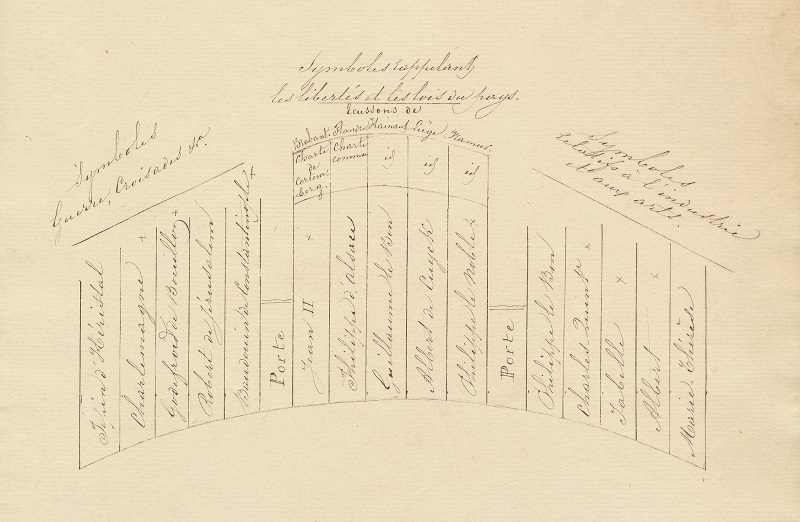 Symboles rappelant
les libertés et les lois du pays.
Ecussons de
Brabant. Flandre Hainaut Liège. Namur.
Charte de Cortemberg.
Charte commu
id
id
id
Symboles
Guerre, Croisades &c.
Symboles
relatifs à l'industrie
et aux arts.
Pépin d'Héristal
Charlemagne +
Godefroid de Bouillon +
Robert de Jérusalem
Baudouin de Constantinople +
Porte
Jean II ×
Philippe d'alsace
Guillaume le Bon
Albert de Cuyck
Philippe le Noble ×
Porte
Philippe le Bon
Charles Quint ×
Isabelle ×
Albert ×
Marie-Thérèse